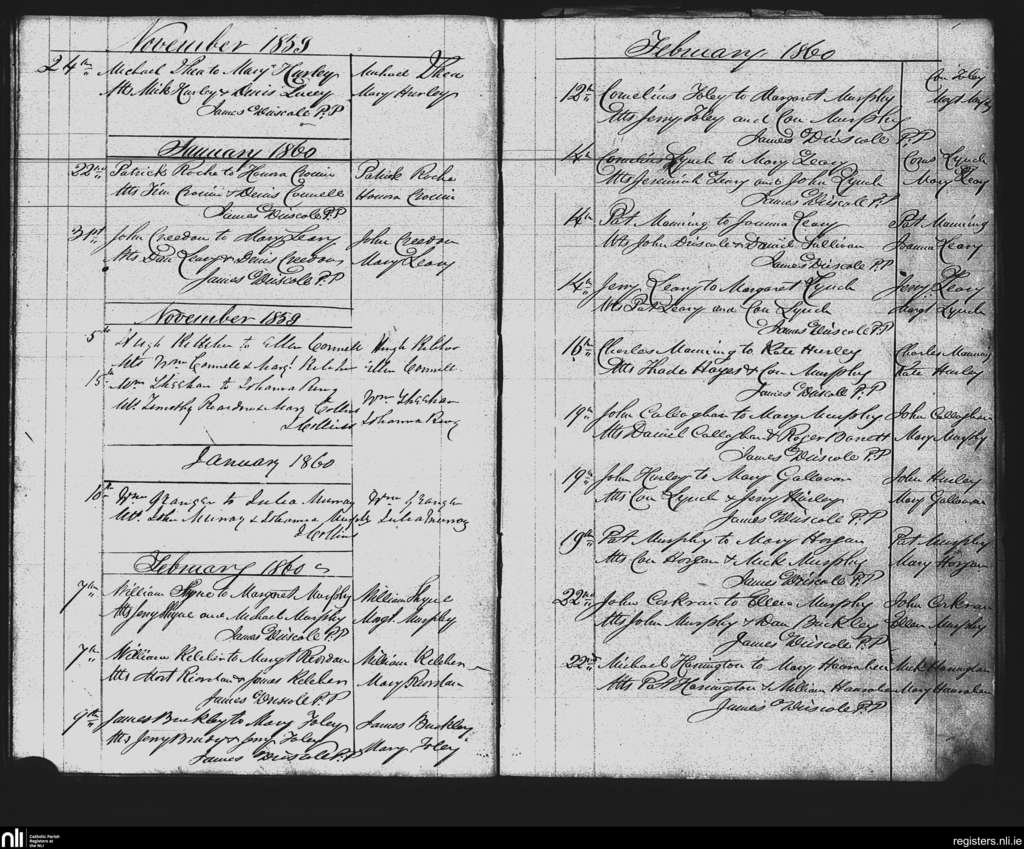 November 1859
24th Michael Shea to Mary Hurley Michael Shea
Atts Mick Hurley & Denis Lucey Mary Hurley
James Driscole P.P
January 1860
22nd Patrick Roche to Honora Cronin Patrick Roche
Atts Tim Cronin & Denis Connell Honora Cronin
James Driscole P.P
31st John Creedon to Mary Leary John Creedon
Atts Dan Leary & Denis Creedon Mary Leary
James Driscole P.P
November 1859
5th Hugh Kelleher to Ellen Connell Hugh Kelleher
Atts Wm Connell & Margt Kelleher Ellen Connell
15th Wm Sheehan to Johanna Ring Wm Sheehan
Wt. Timothy Reardon & Mary Collins Johanna Ring
J Collins
January 1860
10th Wm Granger to Julia Murray Wm Granger
Wt. John Murray & Johanna Murphy Julia Murray
J Collins
February 1860
7th William Shyne to Margaret Murphy William Shyne
Atts Jerry Shyne and Michael Murphy Margt Murphy
James Driscole P.P
7th William Keleher to Margt Riordan William Keleher
Atts Riordan & James Keleher Mary Riordan
James Driscole P.P
9th James Buckley to Mary Foley James Buckley
Atts Jerry & Jerry Foley Mary Foley
James Driscole P.P
February 1860
12th Cornelius Foley to Margaret Murphy Con Foley
Atts Jerry Foley and Con Murphy Margt Murphy
James Driscole P.P
14th Cornelius Lynch to Mary Leary Corns Lynch
Atts Jeremiah Leary and John Lynch Mary Leary
James Driscole P.P
14th Pat Manning to Joanna Leary Pat Manning
Atts John Driscole & Daniel Sullivan Joanna Leary
James Driscole P.P
14th Jerry Leary to Margaret Lynch Jerry Leary
Atts Pat Leary and Con Lynch Margt Lynch
James Driscole P.P
16th Charles Manning to Kate Hurley Charles Manning
Atts Thade Hayes & Con Murphy Kate Hurley
James Driscole P.P
19th John Calloghan to Mary Murphy John Callaghan
Atts Daniel Callaghan & Roger Barrett Mary Murphy
James Driscole P.P
19th John Hurley to Mary Gallavan John Hurley
Atts Con Lynch & Jerry Hurley Mary Gallavan
James Driscole P.P
19th Pat Murphy to Mary Horgan Pat Murphy
Atts Con Horgan & Mick Murphy Mary Horgan
James Driscole P.P
22nd John Corkran to Ellen Murphy John Corkran
Atts John Murphy & Dan Buckley Ellen Murphy
James Driscole P.P
22nd Michael Harrington to Mary Hanrahan Mick
Atts Pat Harrington & William Hanrahan Mary Hanrahan
James Driscole P.P
nli Catholic Parish
Registers at
the NLI
registers.nli.ie